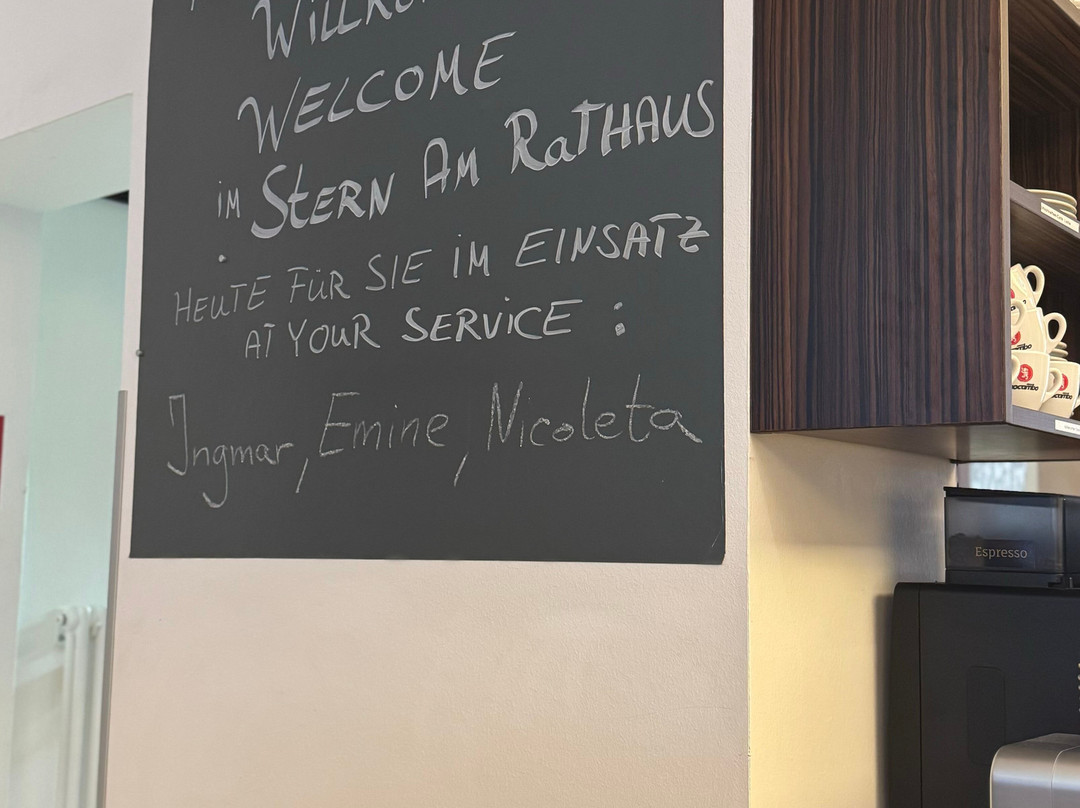 WELCOME
im STERN AM RATHAUS
HEUTE FÜR SIE IM EINSATZ
AT YOUR SERVICE :
Ingmar, Emine, Nicoleta
Espresso